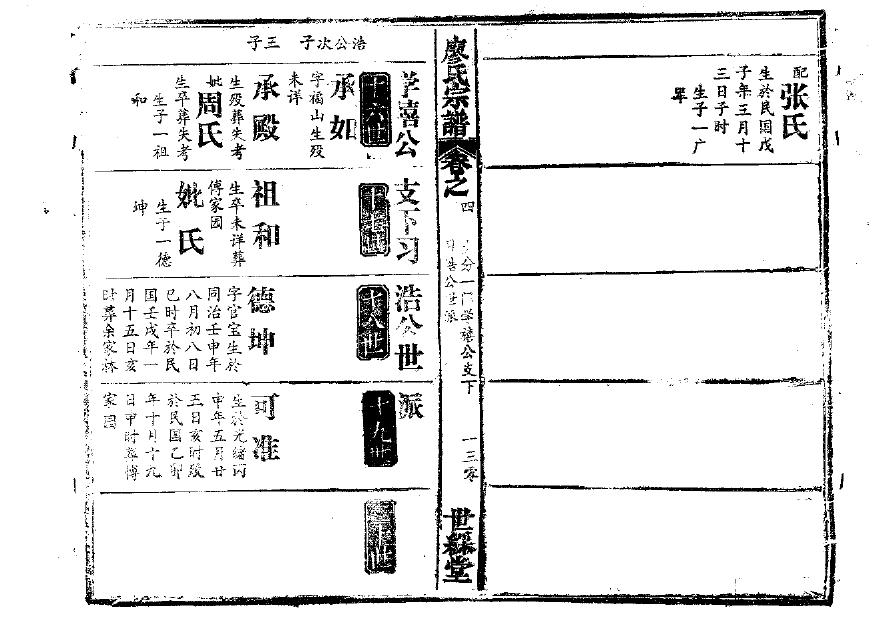 配
张氏
生於民国戊
子年三月十
三日子时
生子一广
廖氏宗譜
卷之
四
公支下
一三零
世綵堂
学禧公
支下习
浩公世
派
浩公次子
三子
十六世
承如
字福山生殁
未详
承殿
生殁葬失考
妣
周氏
生卒葬失考
生子一祖
和
十七世
祖和
生卒未详葬
傅家园
妣氏
生子一德
坤
十八世
德坤
字官宝生於
同治壬申年
八月初八日
巳时卒於民
国壬戌年一
月十五日亥
时葬余家林
十九世
可准
生於光绪丙
申年五月廿
三日亥时殁
於民国乙卯
年十月十九
日甲时葬傅
家园
二十世